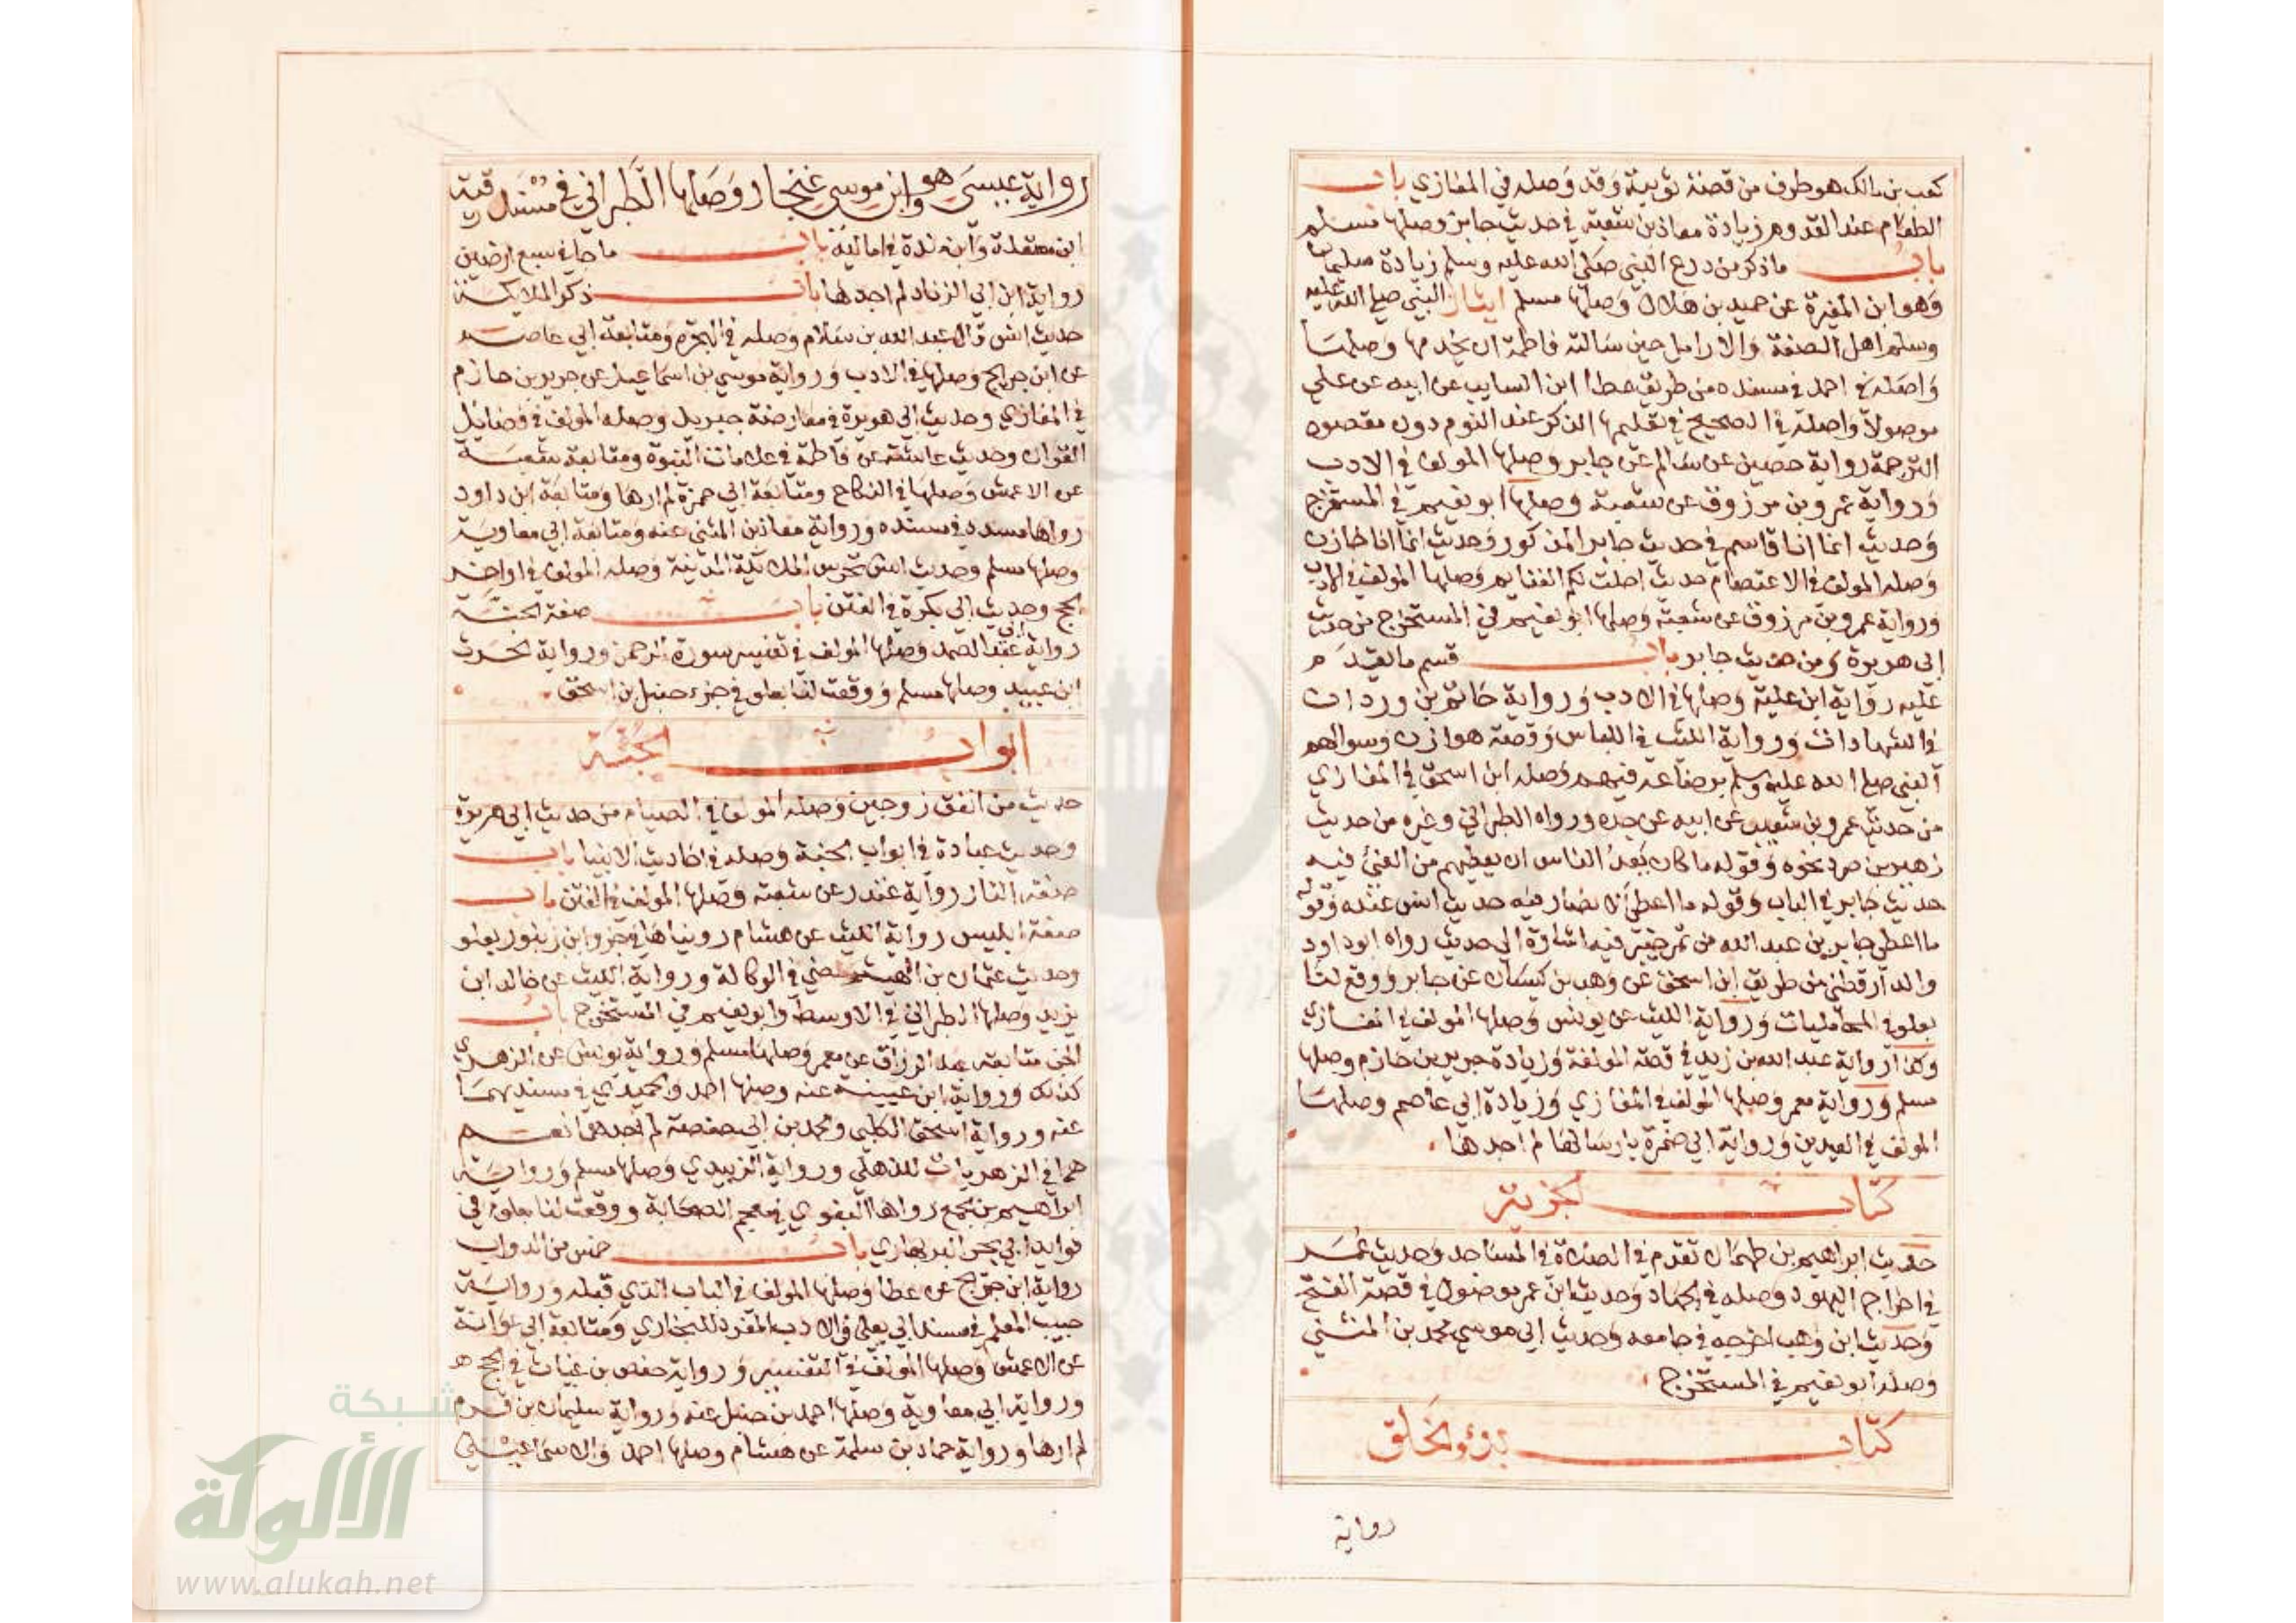 كعب بن مالك هو طرف من قصة توبته وقد وصله في المغازي باب
الطعام عند القدوم زيادة معاذ بن شعبة في حديث جابر وصلها مسلم
باب ما ذكر من درع النبي صلى الله عليه وسلم زيادة سليمان
وهو ابن المغيرة عن حميد بن هلال وصلها مسلم ايثار النبي صلى الله عليه
وسلم اهل الصفة والارامل حين سالته فاطمة ان يخدمها وصلها
واصله في احمد في مسنده من طريق عطا ابن السايب عن ابيه عن علي
موصولا واصله في الصحيح في تعليمها الذكر عند النوم دون مقصود
الترجمة رواية حصين عن سالم عن جابر وصلها المولف في الادب
ورواية عمرو بن مرزوق عن شعبة وصلها ابو نعيم في المستخرج
وحديث انما انا قاسم في حديث جابر المذكور وحديث انما انا خازن
وصله المولف في الاعتصام حديث احلت لكم الغنايم وصلها المولف في
ورواية عمرو بن مرزوق عن شعبة وصلها ابو نعيم في المستخرج من حديث
ابي هريرة ومن حديث جابر باب قسم ما يقدم
عليه رواية ابن علية وصلها في الادب ورواية حاتم بن وردان
في الشهادات ورواية الليث في اللباس وقصة هوازن وسوالهم
النبي صلى الله عليه وسلم برضاعه فيهم وصله ابن اسحق في المغازي
من حديث عمرو بن شعيب عن ابيه عن جده ورواه الطبراني وغيره من حديث
زهير بن صرد بنحوه وقوله ما كان يعد الناس ان يعطيهم من الفئ فيه
حديث جابر في الباب وقوله ما اعطى الانصار فيه حديث انس عنده وقوله
ما اعطى جابر بن عبد الله من تمر خيبر فيه اشارة الى حديث رواه ابو داود
والدارقطني من طريق ابن اسحق عن وهب بن كيسان عن جابر ووقع لنا
بعلو في المحامليات ورواية الليث عن يونس وصلها المولف في المغازي
وكذا رواية عبد الله بن زيد في قصة المولفة وزيادة جرير بن حازم وصلها
مسلم ورواية معمر وصلها المولف في المغازي وزيادة ابي عاصم وصلها
المولف في العيدين ورواية ابي ضمرة بارسالها لم اجدها
كتاب الجزية
حديث ابراهيم بن طهمان تقدم في الصلاة في المساجد وحديث عمر
في اخراج اليهود وصله في الجهاد وحديث ابن عمر موصول في قصة الفتح
وحديث ابن وهب اخرجه في جامعه وحديث ابي موسى محمد بن المثنى
وصله ابو نعيم في المستخرج
كتاب بدؤ الخلق
رواية
رواية عيسى هو ابن موسى غنجار وصلها الطبراني في مسند رقبة
ابن مصقلة وابن مندة في اماليه باب ما جا في سبع ارضين
رواية ابن ابي الزناد لم اجدها باب ذكر الملايكة
حديث انس قال عبد الله بن سلام وصله في الهجرة ومتابعة ابي عاصم
عن ابن جريج وصلها في الادب ورواية موسى بن اسماعيل عن جرير بن حازم
في المغازي وحديث ابي هريرة في معارضة جبريل وصله المولف في فضايل
القران وحديث عائشة عن فاطمة في علامات النبوة ومتابعة شعبة
عن الاعمش وصلها في النكاح ومتابعة ابي حمزة لم ارها ومتابعة ابن داود
رواها مسدد في مسنده ورواية معاذ بن المثنى عنه ومتابعة ابي معاوية
وصلها مسلم وحديث انس تحرس الملائكة المدينة وصله المولف في اواخر
الحج وحديث ابي بكرة في الفتن باب صفة الجنة
رواية ابي عبد الصمد وصلها المولف في تفسير سورة الرحمن ورواية الحرث
ابن عبيد وصلها مسلم ووقعت لنا بعلو في جزء حنبل بن اسحق
ابواب الجنة
حديث من انفق زوجين وصله المولف في الصيام من حديث ابي هريرة
وحديث عبادة في ابواب الجنة وصله في احاديث الانبيا باب
صفة النار رواية غندر عن شعبة وصلها المولف في الفتن باب
صفة ابليس رواية الليث عن هشام رويناها في جزو ابن زنبور بعلو
وحديث عثمان بن الهيثم مضى في الوكالة ورواية الليث عن خالد ابن
يزيد وصلها الطبراني في الاوسط وابو نعيم في المستخرج باب
الجن متابعة عبد الرزاق عن معمر وصلها مسلم ورواية يونس عن الزهري
كذلك ورواية ابن عيينة عنه وصلها احمد والحميدي في مسنديهما
عنه ورواية اسحق الكلبي ومحمد بن ابي حفصة لم نجدهما نعم
هما في الزهريات للذهلي ورواية الزبيدي وصلها مسلم ورواية
ابراهيم بن مجمع رواها البغوي في معجم الصحابة ووقعت لنا بعلو في
فوايد ابي بحر البربهاري باب خمس من الدواب
رواية ابن جريج عن عطا وصلها المولف في الباب الذي قبله ورواية
حبيب المعلم في مسند ابي يعلى والادب المفرد للبخاري ومتابعة ابي عوانة
عن الاعمش وصلها المولف في التفسير ورواية حفص بن غياث في الحج
ورواية ابي معاوية وصلها احمد بن حنبل عنه ورواية سليمان بن قرم
لم ارها ورواية حماد بن سلمة عن هشام وصلها احمد والاسماعيلي
شبكة
الألوكة
www.alukah.net